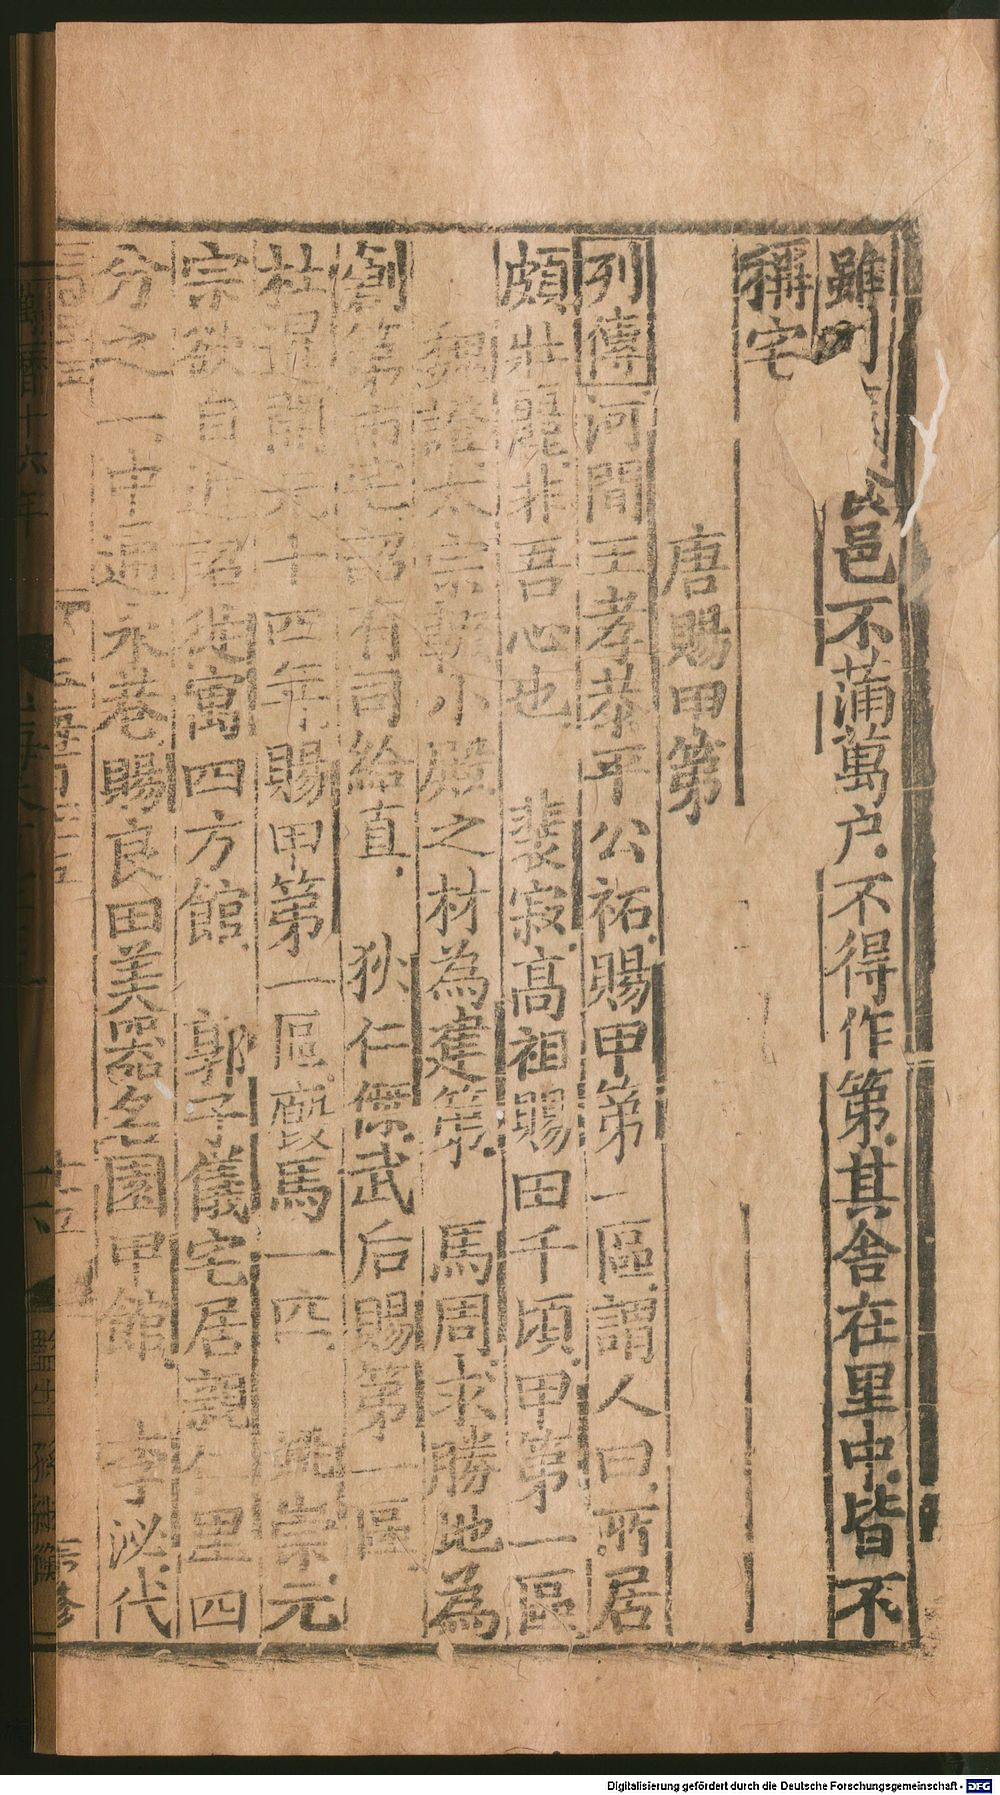 雖
邑不蒲萬户不得作第其舍在里中皆不
稱宅
唐賜甲第
列傳河間王孝恭平公祏賜甲第一區謂人曰所居
頗壯麗非吾心也 裴寂高祖賜田千頃甲第一區
魏證太宗輟小殿之材為建第 馬周求勝地為
創第市宅詔有司給直 狄仁傑武后賜第一區
杜暹開元十四年賜甲第一區廐馬一匹 姚崇元
宗欲自近詔徙寓四方館 郭子儀宅居親仁里四
分之一中通永巷賜良田美器名園甲館 李泌代
Digitalisierung gefördert durch die Deutsche Forschungsgemeinschaft - DFG